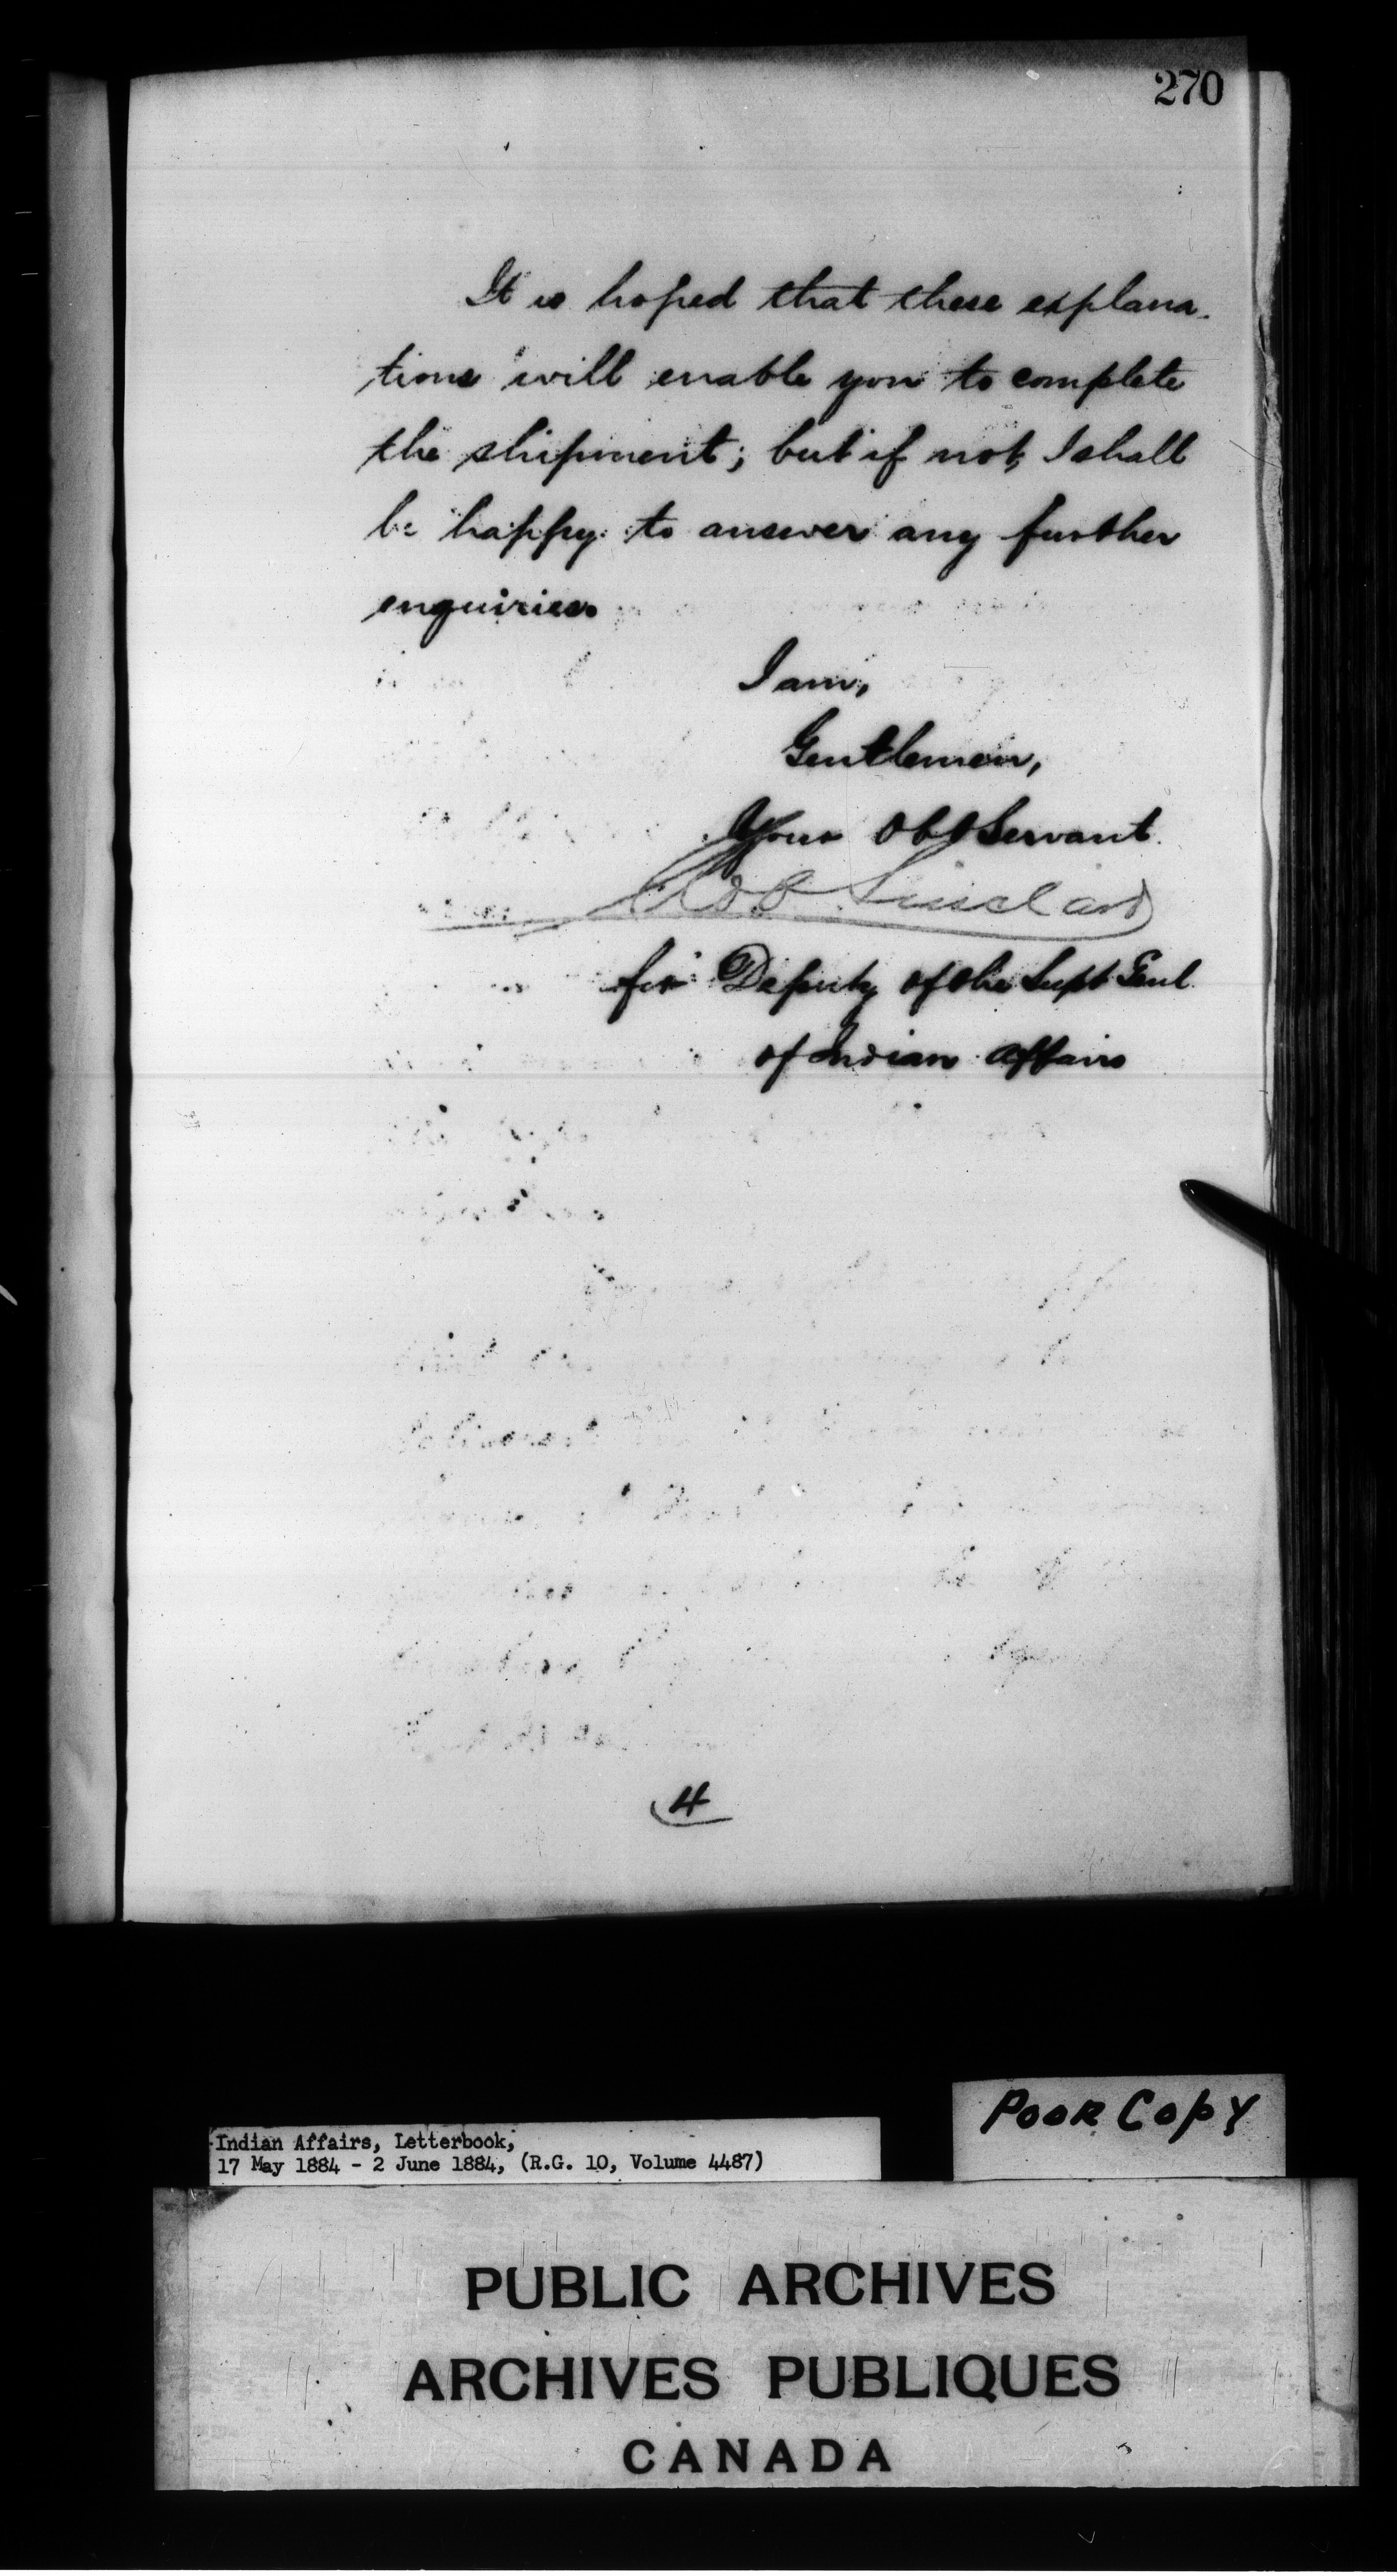 270
It is hoped that these explana-
tions will enable you to complete
the shipment; but if not, I shall
be happy to answer any further
enquiries.
I am,
Gentlemen,
Your Obt Servant
Sinclair
for Deputy of the Supt Genl
of Indian Affairs
4
POOR COPY
Indian Affairs, Letterbook,
17 May 1884 - 2 June 1884, (R.G. 10, Volume 4487)
PUBLIC ARCHIVES
ARCHIVES PUBLIQUES
CANADA